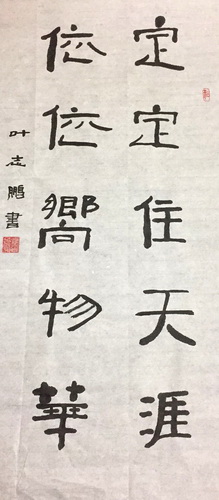 定定住天涯
依依嚮物華
叶志鵬書